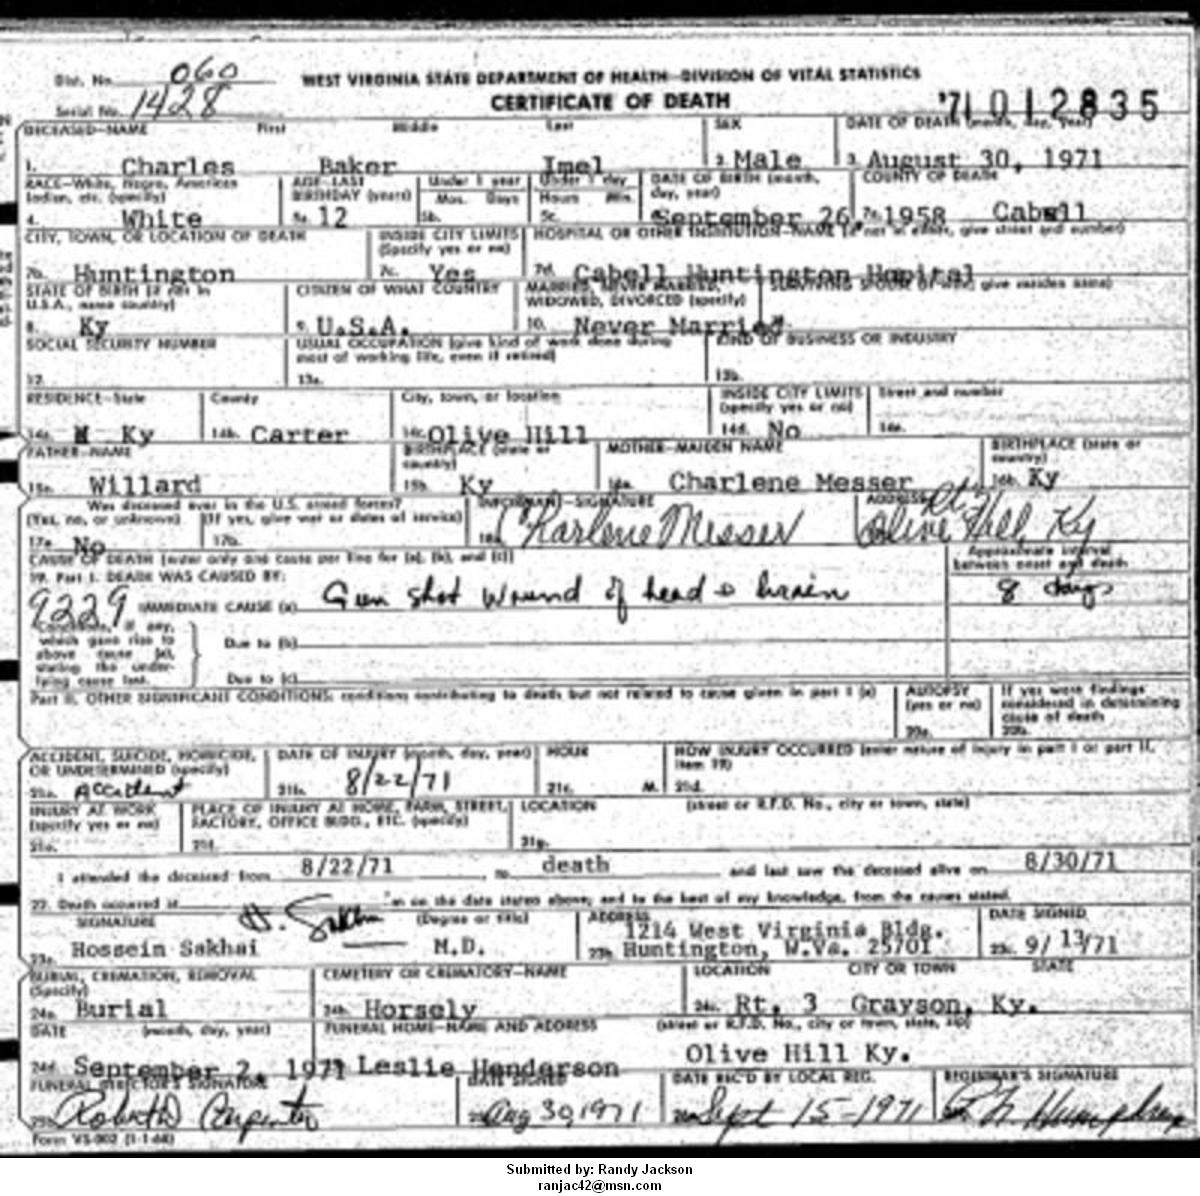 Dist. No. 060
WEST VIRGINIA STATE DEPARTMENT OF HEALTH—DIVISION OF VITAL STATISTICS
Serial No. 1428
CERTIFICATE OF DEATH
'71 012835
DECEASED—NAME First Middle Last SEX DATE OF DEATH (month, day, year)
1. Charles Baker Imel 2. Male 3. August 30, 1971
RACE—White, Negro, American Indian, etc. (specify) AGE—LAST BIRTHDAY (years) Under 1 year Mos. Days Under 1 day Hours Min. DATE OF BIRTH (month, day, year) COUNTY OF DEATH
4. White 5a. 12 5b. 5c. 6. September 26, 1958 7a. Cabell
CITY, TOWN, OR LOCATION OF DEATH INSIDE CITY LIMITS (Specify yes or no) HOSPITAL OR OTHER INSTITUTION—NAME (if not in either, give street and number)
7b. Huntington 7c. Yes 7d. Cabell Huntington Hopital
STATE OF BIRTH (if not in U.S.A., name country) CITIZEN OF WHAT COUNTRY MARRIED, NEVER MARRIED, WIDOWED, DIVORCED (specify) SURVIVING SPOUSE (if wife, give maiden name)
8. Ky 9. U.S.A. 10. Never Married
SOCIAL SECURITY NUMBER USUAL OCCUPATION (give kind of work done during most of working life, even if retired) KIND OF BUSINESS OR INDUSTRY
12. 13a. 13b.
RESIDENCE—State County City, town, or location INSIDE CITY LIMITS (specify yes or no) Street and number
14a. Ky 14b. Carter 14c. Olive Hill 14d. No 14e.
FATHER—NAME BIRTHPLACE (state or country) MOTHER—MAIDEN NAME BIRTHPLACE (state or country)
15a. Willard 15b. Ky 16a. Charlene Messer 16b. Ky
Was deceased ever in the U.S. armed forces? INFORMANT—SIGNATURE ADDRESS Rt
(Yes, no, or unknown) (If yes, give war or dates of service)
17a. No 17b. 18a. Charlene Messer Olive Hill, Ky
CAUSE OF DEATH [enter only one cause per line for (a), (b), and (c)] Approximate interval between onset and death
19. Part I. DEATH WAS CAUSED BY:
9229 IMMEDIATE CAUSE (a) Gun shot wound of head & brain 8 days
Conditions, if any, which gave rise to above cause (a), stating the underlying cause last.
Due to (b)
Due to (c)
Part II. OTHER SIGNIFICANT CONDITIONS: conditions contributing to death but not related to cause given in part I (a) AUTOPSY (yes or no) If yes were findings considered in determining cause of death
20a. 20b.
ACCIDENT, SUICIDE, HOMICIDE, OR UNDETERMINED (specify) DATE OF INJURY (month, day, year) HOUR HOW INJURY OCCURRED (enter nature of injury in part I or part II, item 19)
21a. Accident 21b. 8/22/71 21c. M. 21d.
INJURY AT WORK (specify yes or no) PLACE OF INJURY AT HOME, FARM, STREET, FACTORY, OFFICE BLDG., ETC. (specify) LOCATION (street or R.F.D. No., city or town, state)
21e. 21f. 21g.
I attended the deceased from 8/22/71 to death and last saw the deceased alive on 8/30/71
22. Death occurred at m on the date stated above; and to the best of my knowledge, from the causes stated.
SIGNATURE H. Sakhai (Degree or title) ADDRESS 1214 West Virginia Bldg. DATE SIGNED
23a. Hossein Sakhai M.D. 23b. Huntington, W.Va. 25701 23c. 9/13/71
BURIAL, CREMATION, REMOVAL (Specify) CEMETERY OR CREMATORY—NAME LOCATION CITY OR TOWN STATE
24a. Burial 24b. Horsely 24c. Rt. 3 Grayson, Ky.
DATE (month, day, year) FUNERAL HOME—NAME AND ADDRESS (street or R.F.D. No., city or town, state, zip)
24d. September 2, 1971 Leslie Henderson Olive Hill Ky.
FUNERAL DIRECTOR'S SIGNATURE DATE SIGNED DATE REC'D BY LOCAL REG. REGISTRAR'S SIGNATURE
25b. Carpenter Aug 30, 1971 Sept 15-1971 Humphrey
Form VS-002 (1-1-68)
Submitted by: Randy Jackson
ranjac42@msn.com